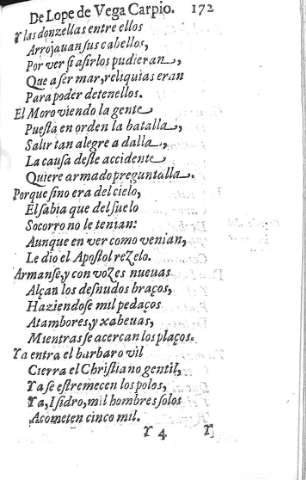 De Lope de Vega Carpio. 172
Y las donzellas entre ellos
Arrojauan sus cabellos,
Por ver si asirlos pudieran,
Que a ser mar, reliquias eran
Para poder detenellos.
El Moro viendo la gente
Puesta en orden la batalla,
Salir tan alegre a dalla,
La causa deste accidente
Quiere armado preguntalla.
Porque sino era del cielo,
El sabia que del suelo
Socorro no le tenian:
Aunque en ver como venian,
Le dio el Apostol rezelo.
Armanse, y con vozes nueuas
Alçan los desnudos braços,
Haziendose mil pedaços
Atambores, y xabeuas,
Mientras se acercan los plaços.
Ya entra el barbaro vil
Cierra el Christiano gentil,
Ya se estremecen los polos,
Ya, Isidro, mil hombres solos
Acometen cinco mil.
Y 4 Y